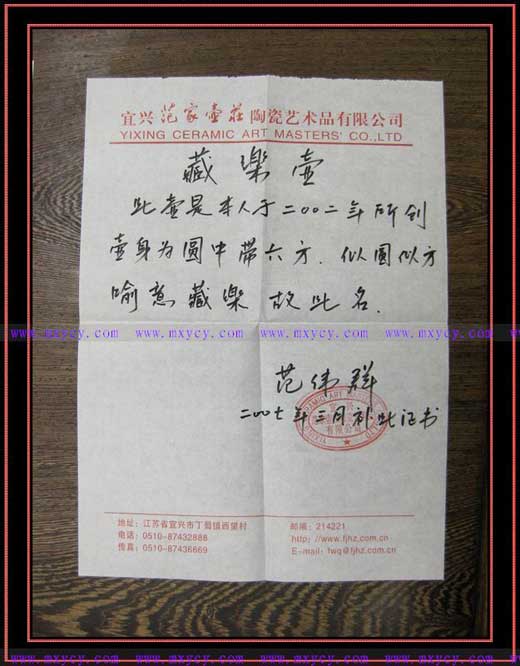 宜兴范家壶莊陶瓷艺术品有限公司
YIXING CERAMIC ART MASTERS' CO.,LTD
藏樂壶
此壶是本人于二〇〇二年所创
壶身为圆中带六方.似圆似方
喻意藏樂 故此名.
www.mxycy.com www.mxycy.com www.mxycy.com www.mxycy.com www.mxycy.com
范伟群
二〇〇七年三月补此证书
地址:江苏省宜兴市丁蜀镇西望村
电话:0510-87432888
传真:0510-87436669
邮编:214221
http://www.fjhz.com.cn
E-mail:fwq@fjhz.com.cn
www.mxycy.com www.mxycy.com www.mxycy.com www.mxycy.com www.mxycy.com